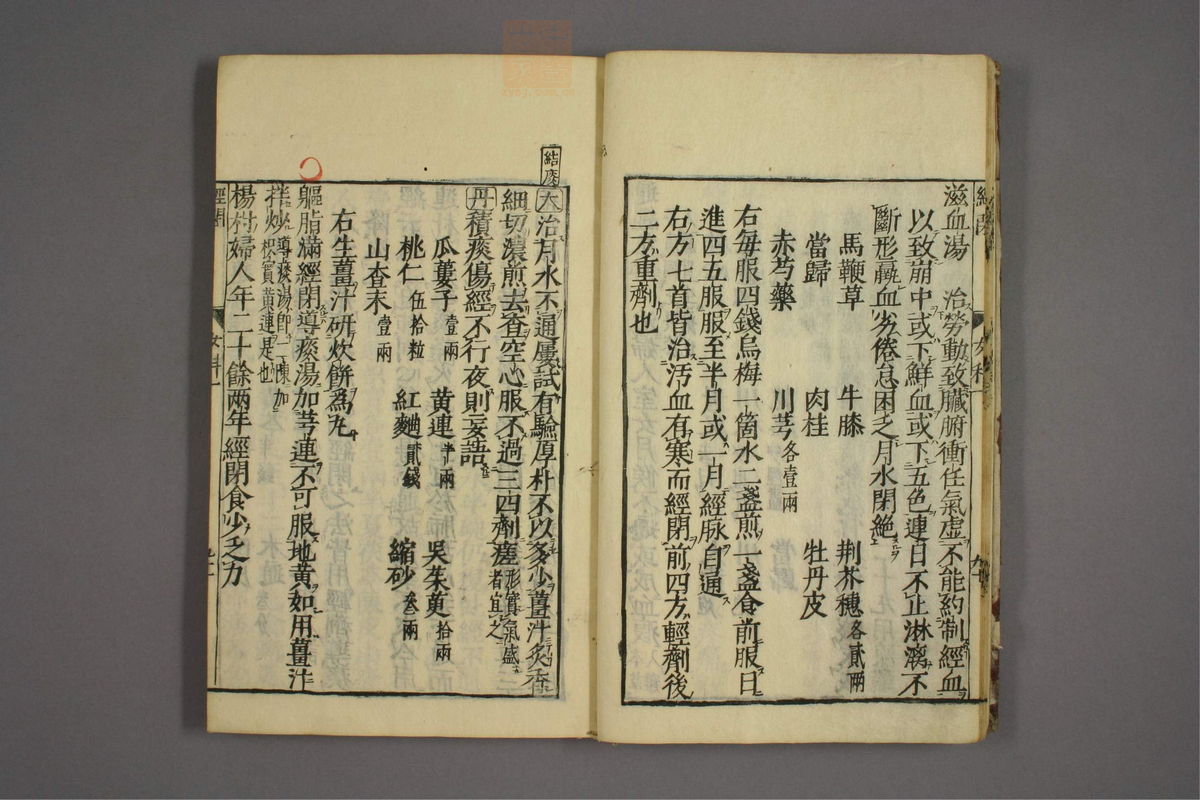 滋血湯 治勞動致臟腑衝任氣虛不能約制經血
以致崩中或下鮮血或下五色連日不止淋漓不
斷形羸血劣倦怠困乏月水閉絕
馬鞭草 牛膝 荆芥穗各貳兩
當歸 肉桂 牡丹皮
赤芍藥 川芎各壹兩
右每服四錢烏梅一箇水二盞煎一盞食前服日
進四五服服至半月或一月經脉自通
右方七首皆治汚血有寒而經閉前四方輕劑後
二方重劑也
結痰
大治月水不通屢試有驗厚朴不以多少薑汁炙香
細切濃煎去査空心服不過三四劑瘥形實氣盛者宜之
丹積痰傷經不行夜則妄語
瓜蔞子壹兩 黃連半兩 吳茱萸拾兩
桃仁伍拾粒 紅麯貳錢 縮砂叁兩
山査末壹兩
右生薑汁研炊餅爲丸
軀脂滿經閉導痰湯加芎連不可服地黃如用薑汁
拌炒導痰湯卽二陳加枳實黃連是也
楊村婦人年二十餘兩年經閉食少乏力
經閉
女科一